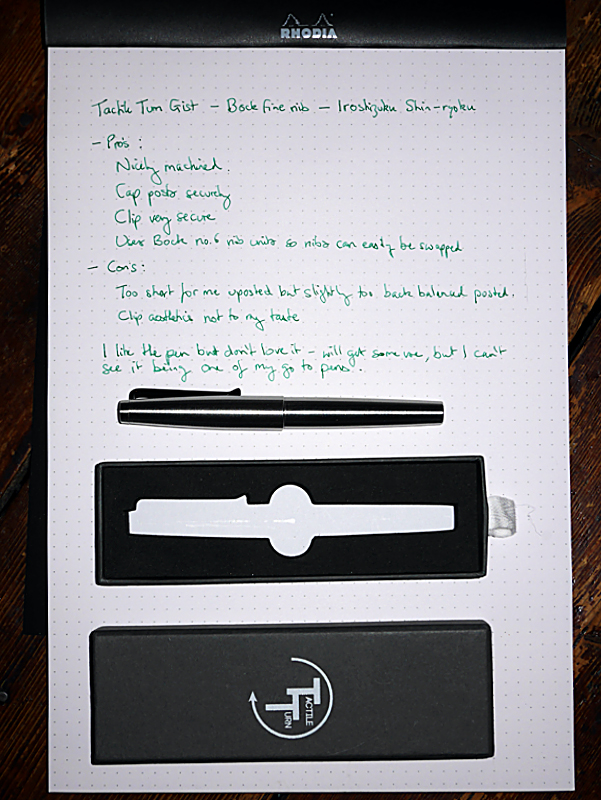 RHODIA
Tactile Turn Gist - Bock fine nib - Iroshizuku Shin-ryoku
- Pros :
Nicely machined.
Cap posts securely
Clip very secure
Uses Bock no.6 nib units so nibs can easily be swapped
- Con's :
Too short for me uposted but slightly too back balanced posted.
Clip aesthetics not to my taste
I like the pen but don't love it - will get some use, but I can't
see it being one of my go to pens.
TACTILE
TURN